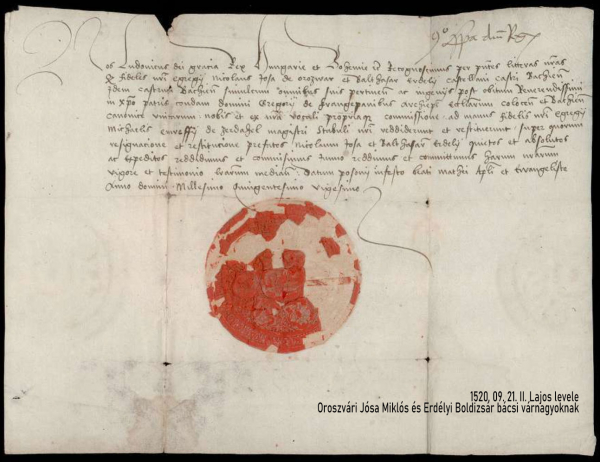 Nos Ludovicus dei gracia Rex Hungarie et Bohemie etc Recognoscimus per pntes litteras nras
q fidelis nri egregy Nicolaus Josa de orozwar et Balthasar Erdely castellani castri Bachien
Idem castrum Bachien simulcum omnibus suis pertinen ac ingenys post obitum Reverendissimi
in xpo patris condam domini Gregory de Frangepanibus Archiepi ecclarum colocen et Bachien
canonice unitarum nobis et ex nra vocali propriaque commissione ad manus fidelis nri egregy
Michaelis de magistri reddiderunt et restituerunt super quorum
resignacione et restitucione prefatos Nicolaum Josa et Balthasar Erdely quietos et absolutos
ac expeditos reddidimus et commisimus Immo reddimus et committimus harum nrarum
vigore et testimonio lrarum median Datum posony in festo beati mathei Apli et Evangeliste
Anno domini Millesimo Quingentesimo vigesimo
1520, 09, 21, II. Lajos levele
Oroszvári Jósa Miklós és Erdélyi Boldizsár bácsi várnagyoknak